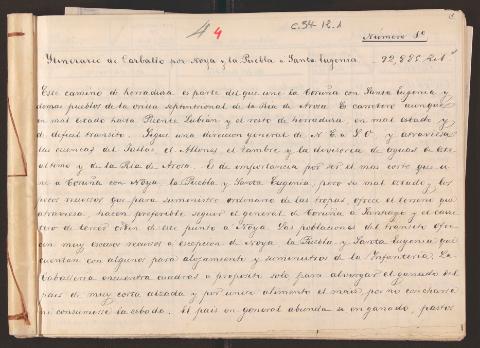 4 4
C.34-12.1
Número 8º
Itinerario de Carballo por Noya y la Puebla a Santa Eugenia
Este camino de herradura es parte del que une la Coruña con Santa Eugenia y
demas pueblos de la orilla septentrional de la Ria de Arosa. Es carretero aunque
en mal estado hasta Puente Lubián y el resto de herradura, en mal estado y
de dificil transito. Sigue una direccion general de N. E. a S. O. y atraviesa
las cuencas del Jallas el Allones el Tambre y la divisoria de aguas de este
ultimo y de la Ria de Arosa. Es de importancia por ser el mas corto que u-
ne a Coruña con Noya, la Puebla y Santa Eugenia, pero su mal estado y los
pocos recursos que para suministro ordinario de las tropas, ofrece el terreno que
atraviesa hacen preferible seguir el general de Coruña a Santiago y el carre-
tero de tercer orden de este punto a Noya. Las poblaciones del transito ofre-
cen muy escasos recursos a escepcion de Noya la Puebla y Santa Eugenia que
cuentan con algunos para alojamiento y suministros de la Infanteria. La
Caballeria encuentra cuadras a proposito solo para albergar el ganado del
pais de muy corta alzada y por unico alimento el maiz, por no cosecharse
ni consumirse la cebada. El pais en general abunda en ganado, pastos